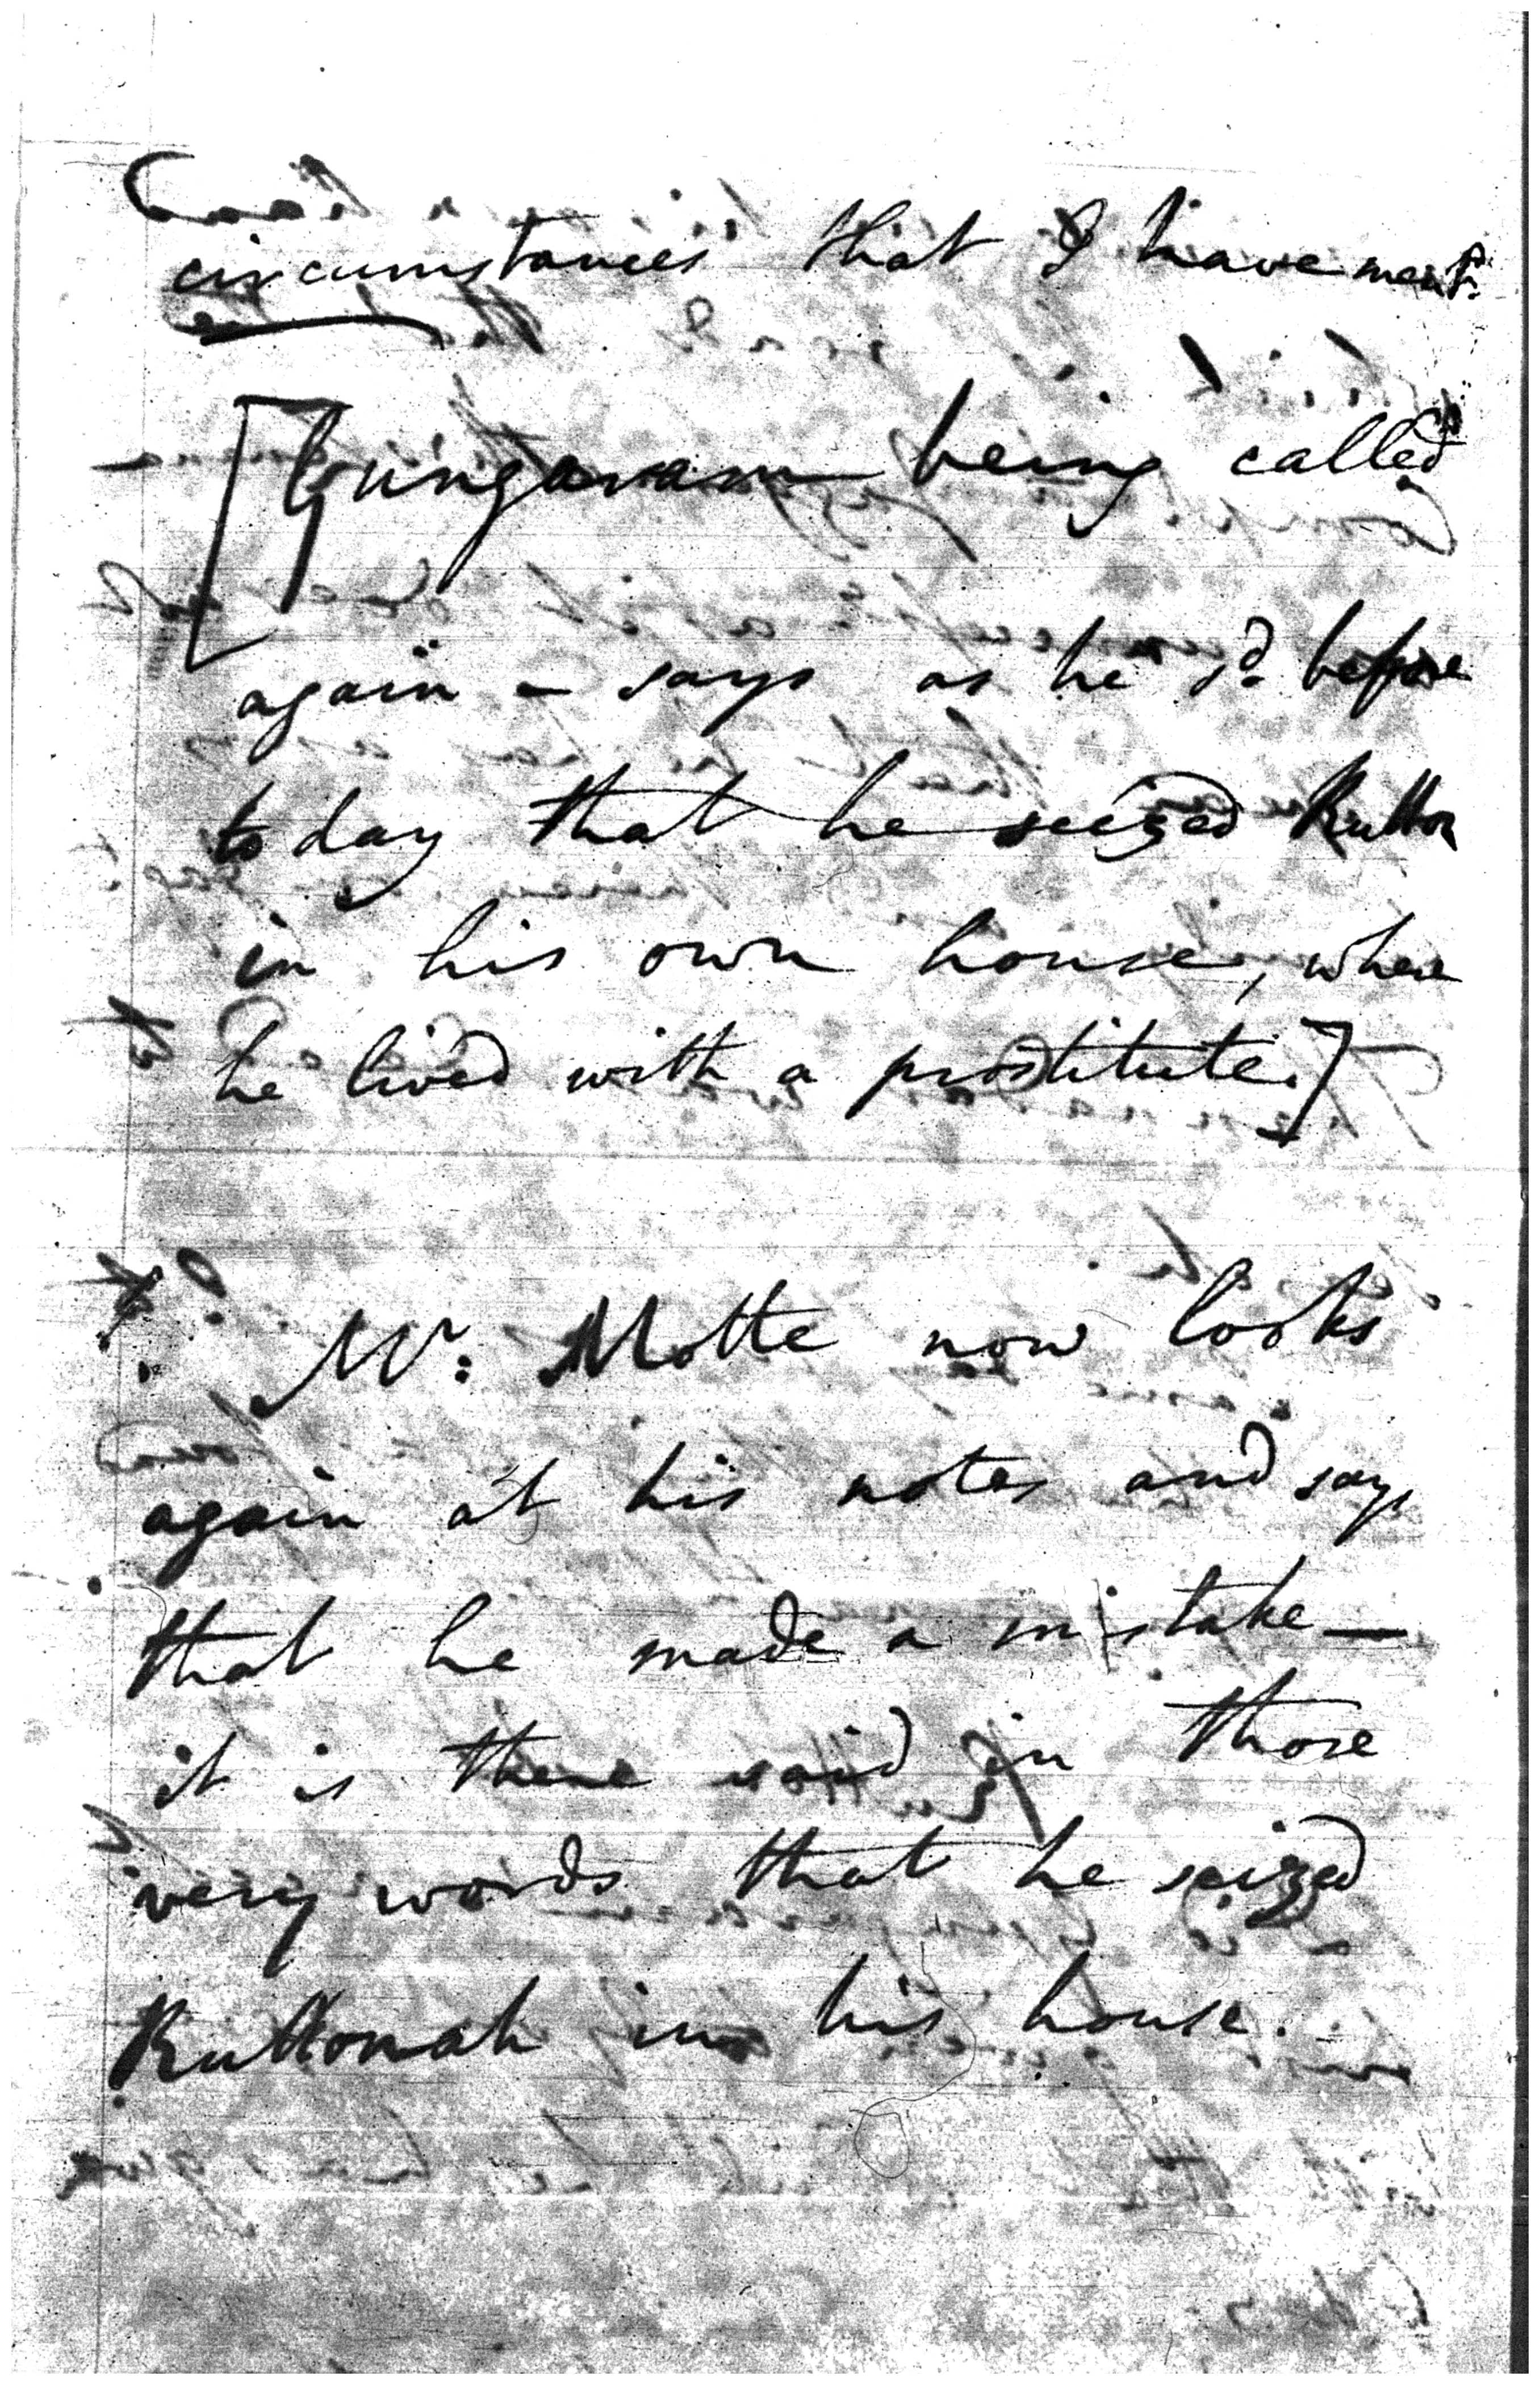 circumstances that I have ment.
[Gungaram being called
again – says as he sd. before
today that he seized Rutton
in his own house, where
he lived with a prostitute.]
Mr: Motte now looks
again at his notes and says
that he made a mistake —
it is there said in those
very words that he seized
Ruttonah in his house.